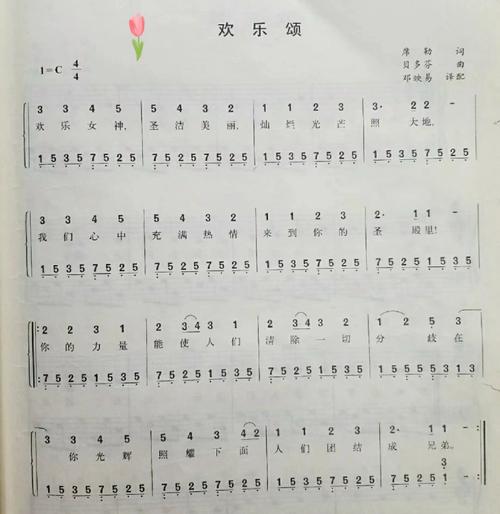 欢乐颂
席勒 词
1=C 4/4 贝多芬 曲
邓映易 译配
3 3 4 5 5 4 3 2 1 1 2 3 3· 2 2 —
欢乐女神, 圣洁美丽, 灿烂光芒 照 大地,
1 5 3 5 7 5 2 5 1 5 3 5 7 5 2 5 1 5 3 5 7 5 2 5 1 5 3 5 7 5 2 5
3 3 4 5 5 4 3 2 1 1 2 3 2· 1 1 —
我们心中 充满热情 来到你的 圣 殿里!
1 5 3 5 7 5 2 5 1 5 3 5 7 5 2 5 1 5 3 5 7 5 2 5
2 2 3 1 2 3 4 3 1 2 3 4 3 2 1 2 5 3
你的力量 能使人们 清除一切 分 歧在
7 5 2 5 1 5 3 5 7 5 2 5 1 5 3 5 7 5 2 5
3 3 4 5 5 4 3 4 2 1 1 2 3 2· 1 1 —
你光辉 照耀下面 人们团结 成 兄弟。
1 5 3 5 7 5 2 5 1 5 3 5 7 5 2 5 1 5 3 5 7 5 2 5